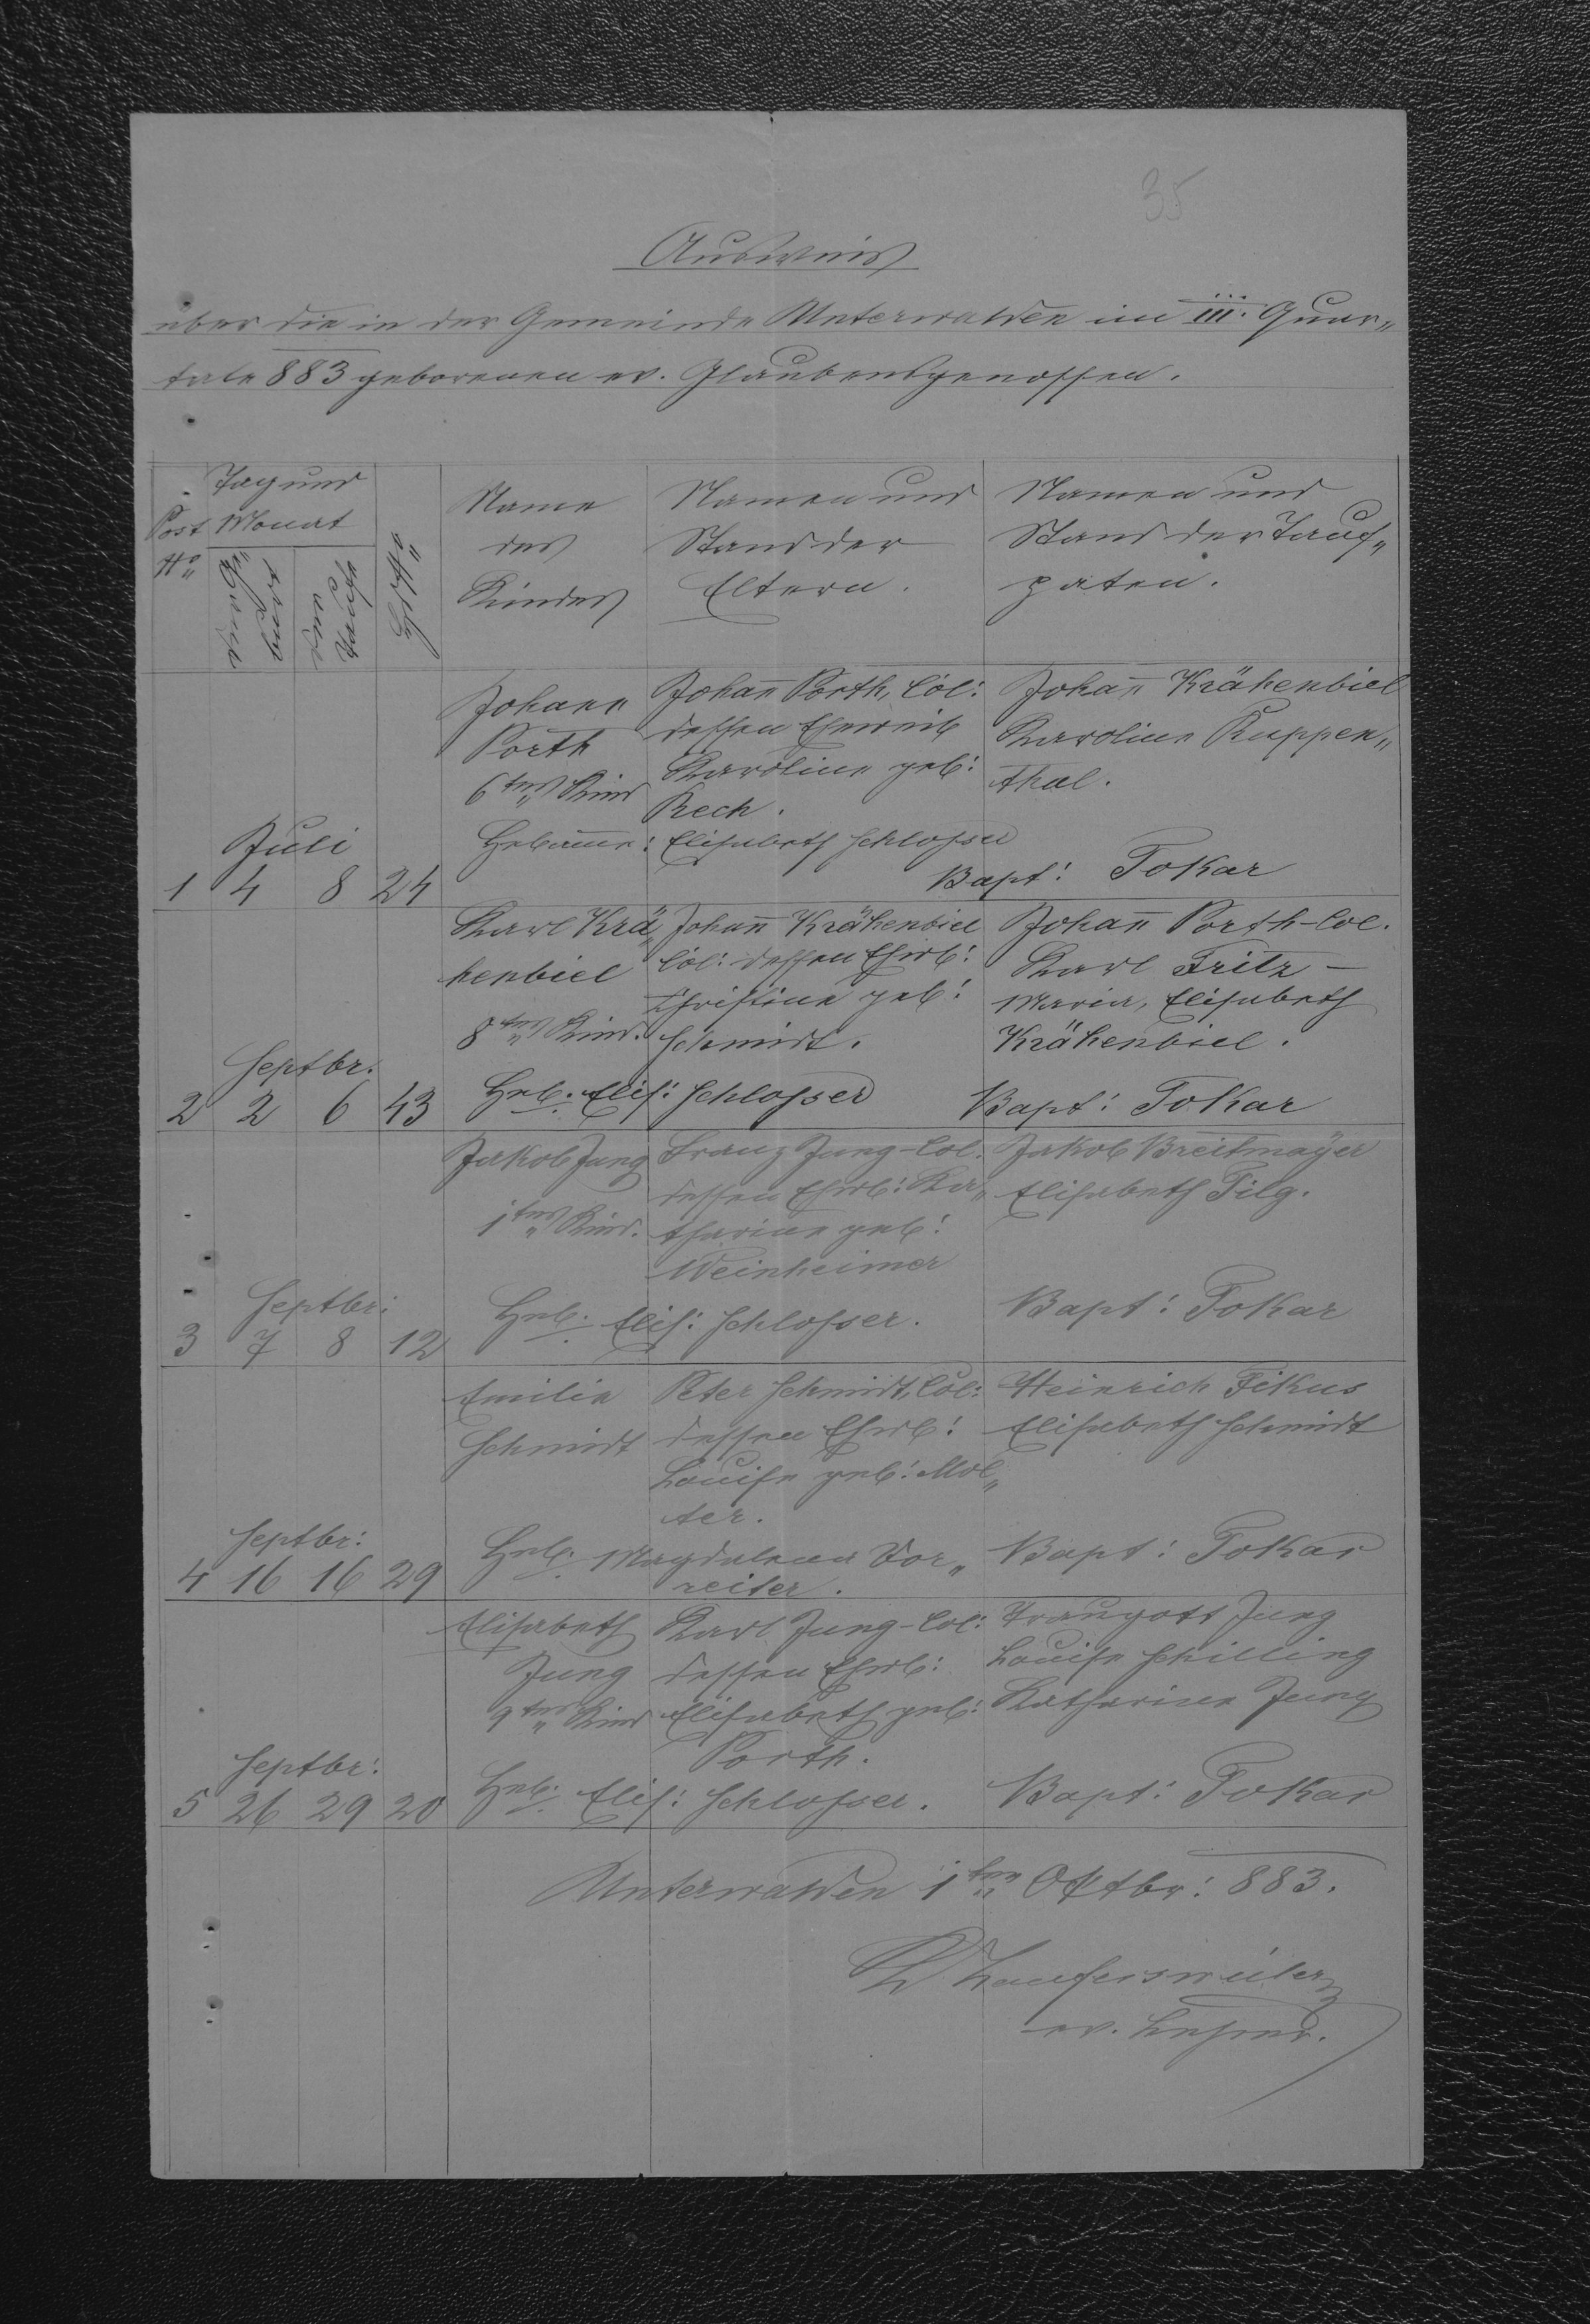 35
Ausweis
über die in der Gemeinde Unterwalden im III. Quar„
tale 883 geborenen ev. Glaubensgenossen.
Post No
Tag und Monat
der Geburt
der Taufe
Hs No
Name des Kindes
Namen und Stand der Eltern.
Namen und Stand der Tauf„paten.
Johann Johañ Porth, Col: Johañ Krähenbiel
Porth dessen Eheweib Karoline Ruppen„
6tes Kind Karoline geb: thal.
Rech.
Juli Hebamme: Elisabeth Schlosser
1 4 8 24 Bapt: Tokar
Karl Krä„ Johañ Krähenbiel Johañ Porth-Col.
henbiel Col: dessen Ehwb: Karl Fritz –
Christine geb: Maria, Elisabeth
8tes Kind. Schmidt. Krähenbiel.
Septbr.
2 2 6 43 Heb. Elis: Schlosser Bapt: Tokar
Jakob Jung Franz Jung-Col. Jakob Breitmaÿer
dessen Ehwb: Ka„ Elisabeth Filg.
1tes Kind. tharine geb:
Weinheimer
Septbr: Heb. Elis: Schlosser. Bapt: Tokar
3 7 8 12
Emilie Peter Schmidt, Col: Heinrich Fikus
Schmidt dessen Ehwb: Elisabeth Schmidt
Louise geb: Mol„
ter.
Septbr: Heb. Magdalena Vor„ Bapt: Tokar
4 16 16 29 reiter.
Elisabeth Karl Jung-Col: Traugott Jung
Jung dessen Ehwb: Louise Schilling
9tes Kind Elisabeth geb: Katharina Jung
Porth.
Septbr: Heb. Elis: Schlosser. Bapt: Tokar
5 26 29 20
Unterwalden 1ten Oktbr: 883.
Laufersweiler
ev. Lehrer.